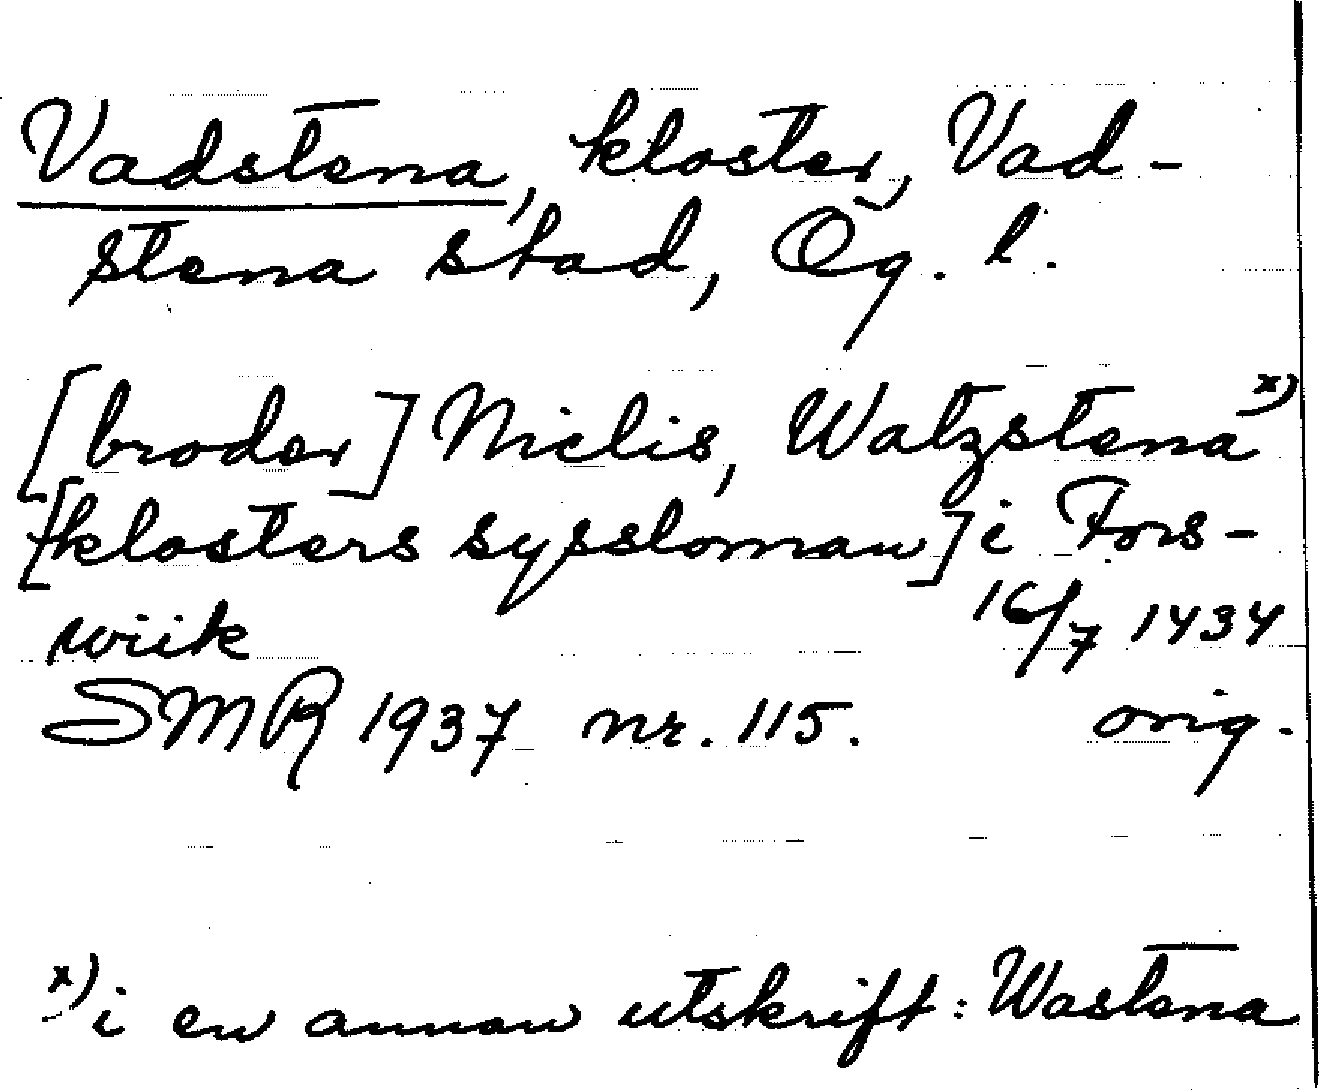 Vadstena, kloster, Vad-
stena stad, Ög. l.
[broder] Niclis, Watzstena x)
[klosters syssloman] i Fors-
wiik 16/7 1434
SMR 1937 nr. 115. orig.
x) i en annan utskrift: Wastena